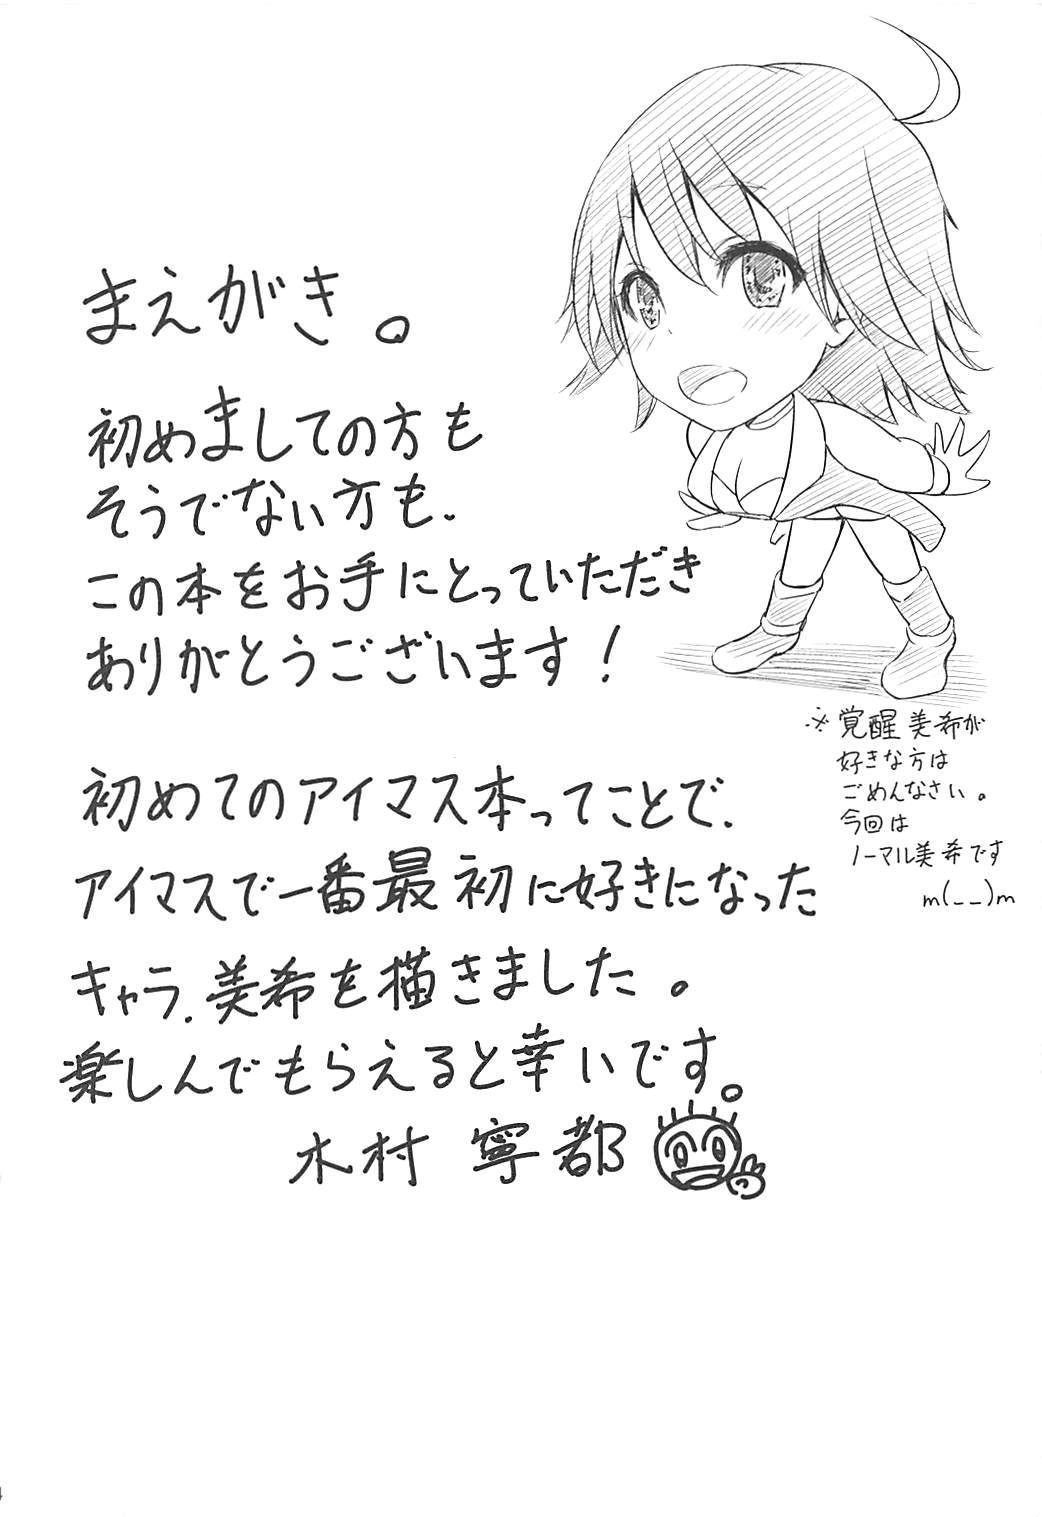 まえがき。
初めましての方も
そうでない方も、
この本をお手にとっていただき
ありがとうございます！
初めてのアイマス本ってことで、
アイマスで一番最初に好きになった
キャラ、美希を描きました。
楽しんでもらえると幸いです。
木村 寧都
※覚醒美希が
好きな方は
ごめんなさい。
今回は
ノーマル美希です
m(_ _)m